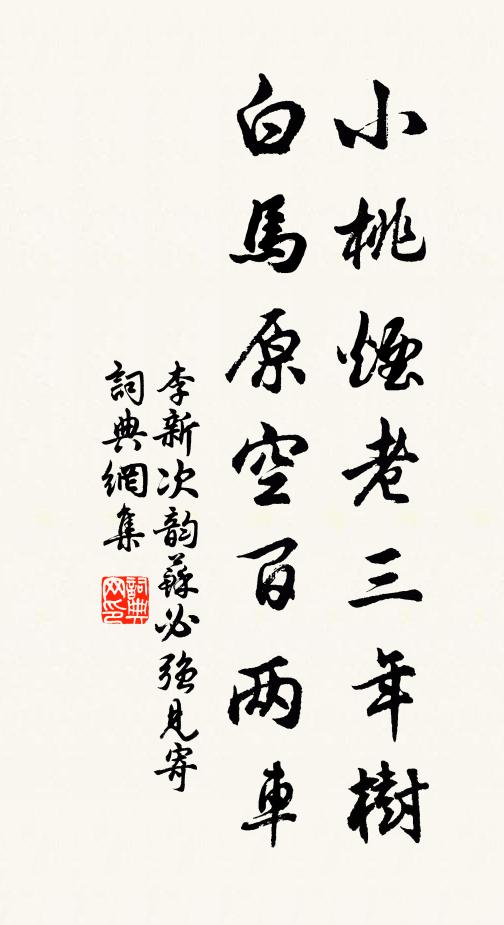 小桃煙老三年樹
白馬原空百两車
李新次韵蘇必強見寄
詞典網集
詞典網印